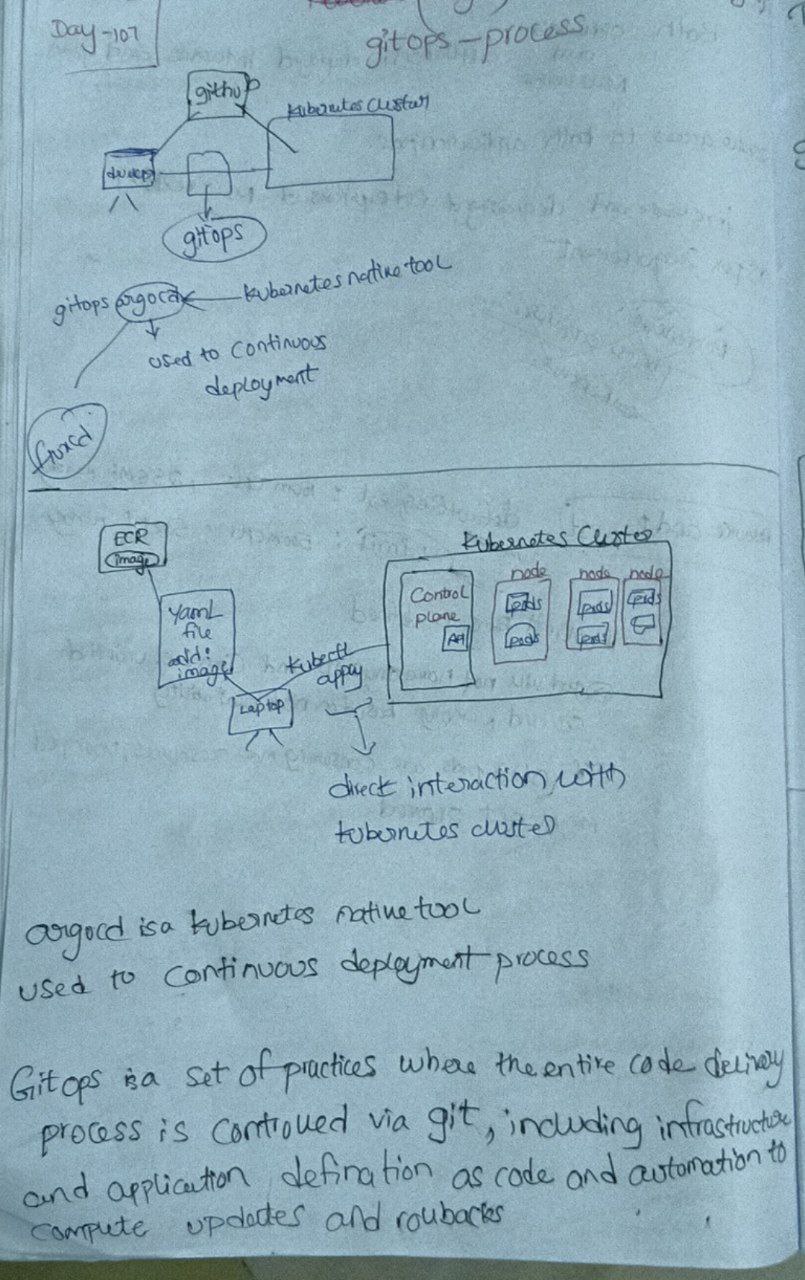 Day-107
gitops-process
github
Kubernetes Cluster
gitops
gitops argocd
Kubernetes native tool
used to continuous
deployment
fluxcd
ECR
image
yaml
file
add:
image
Laptop
Kubectl
apply
Kubernetes Cluster
Control
plane
API
node
node
node
pods
pods
pods
pods
pods
direct interaction with
kubernetes cluster
argocd is a kubernetes native tool
used to continuous deployment process
Gitops is a set of practices where the entire code delivery
process is controlled via git, including infrastructure
and application defination as code and automation to
compute updates and roubacks